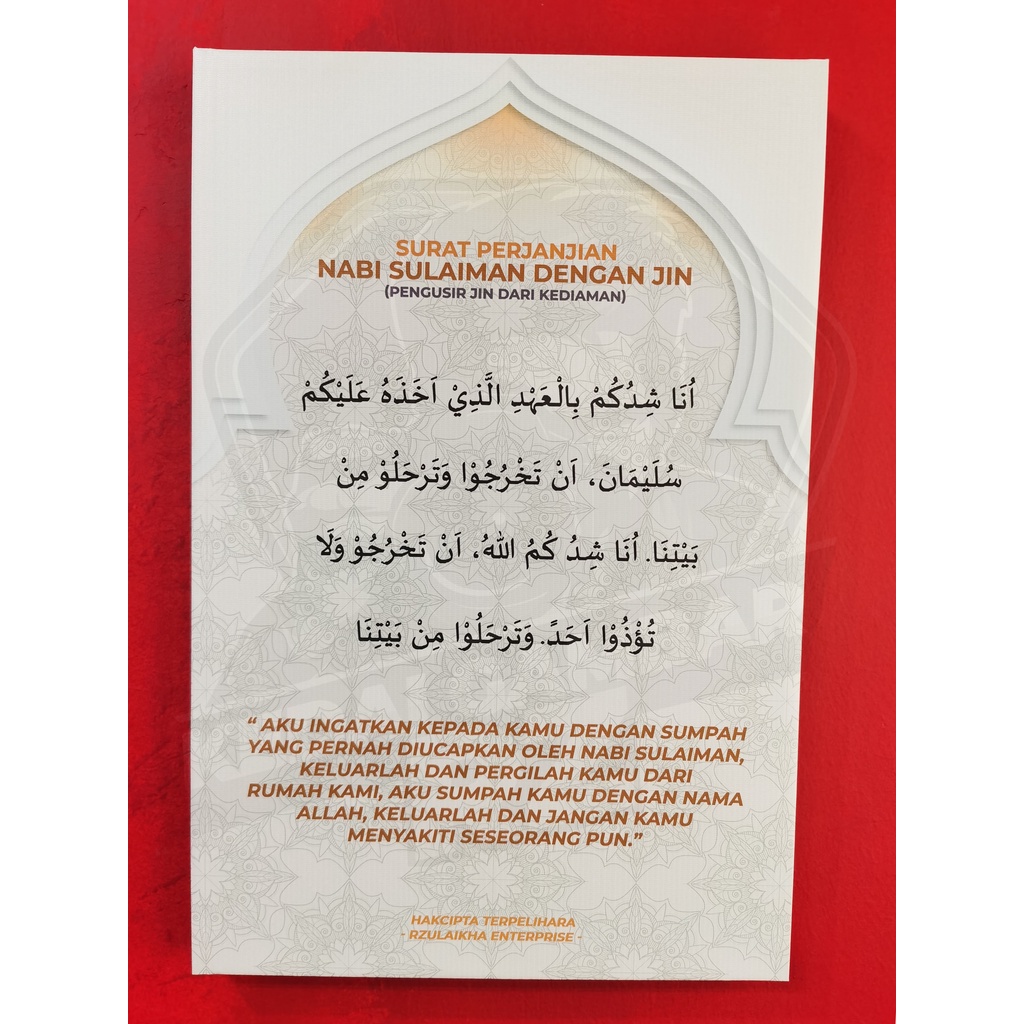 SURAT PERJANJIAN
NABI SULAIMAN DENGAN JIN
(PENGUSIR JIN DARI KEDIAMAN)
اُنَا شِدُكُمْ بِالْعَهْدِ الَّذِيْ اَخَذَهُ عَلَيْكُمْ
سُلَيْمَانَ، اَنْ تَخْرُجُوْا وَتَرْحَلُوْ مِنْ
بَيْتِنَا. اُنَا شِدُ كُمُ اللهُ، اَنْ تَخْرُجُوْ وَلَا
تُؤْذُوْا اَحَدً. وَتَرْحَلُوْا مِنْ بَيْتِنَا
“ AKU INGATKAN KEPADA KAMU DENGAN SUMPAH
YANG PERNAH DIUCAPKAN OLEH NABI SULAIMAN,
KELUARLAH DAN PERGILAH KAMU DARI
RUMAH KAMI, AKU SUMPAH KAMU DENGAN NAMA
ALLAH, KELUARLAH DAN JANGAN KAMU
MENYAKITI SESEORANG PUN.”
HAKCIPTA TERPELIHARA
- RZULAIKHA ENTERPRISE -